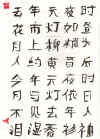 去年元夜时
花市灯如昼
月上柳梢头
人约黄昏后
今年元夜时
月与灯依旧
不见去年人
泪湿春衫袖